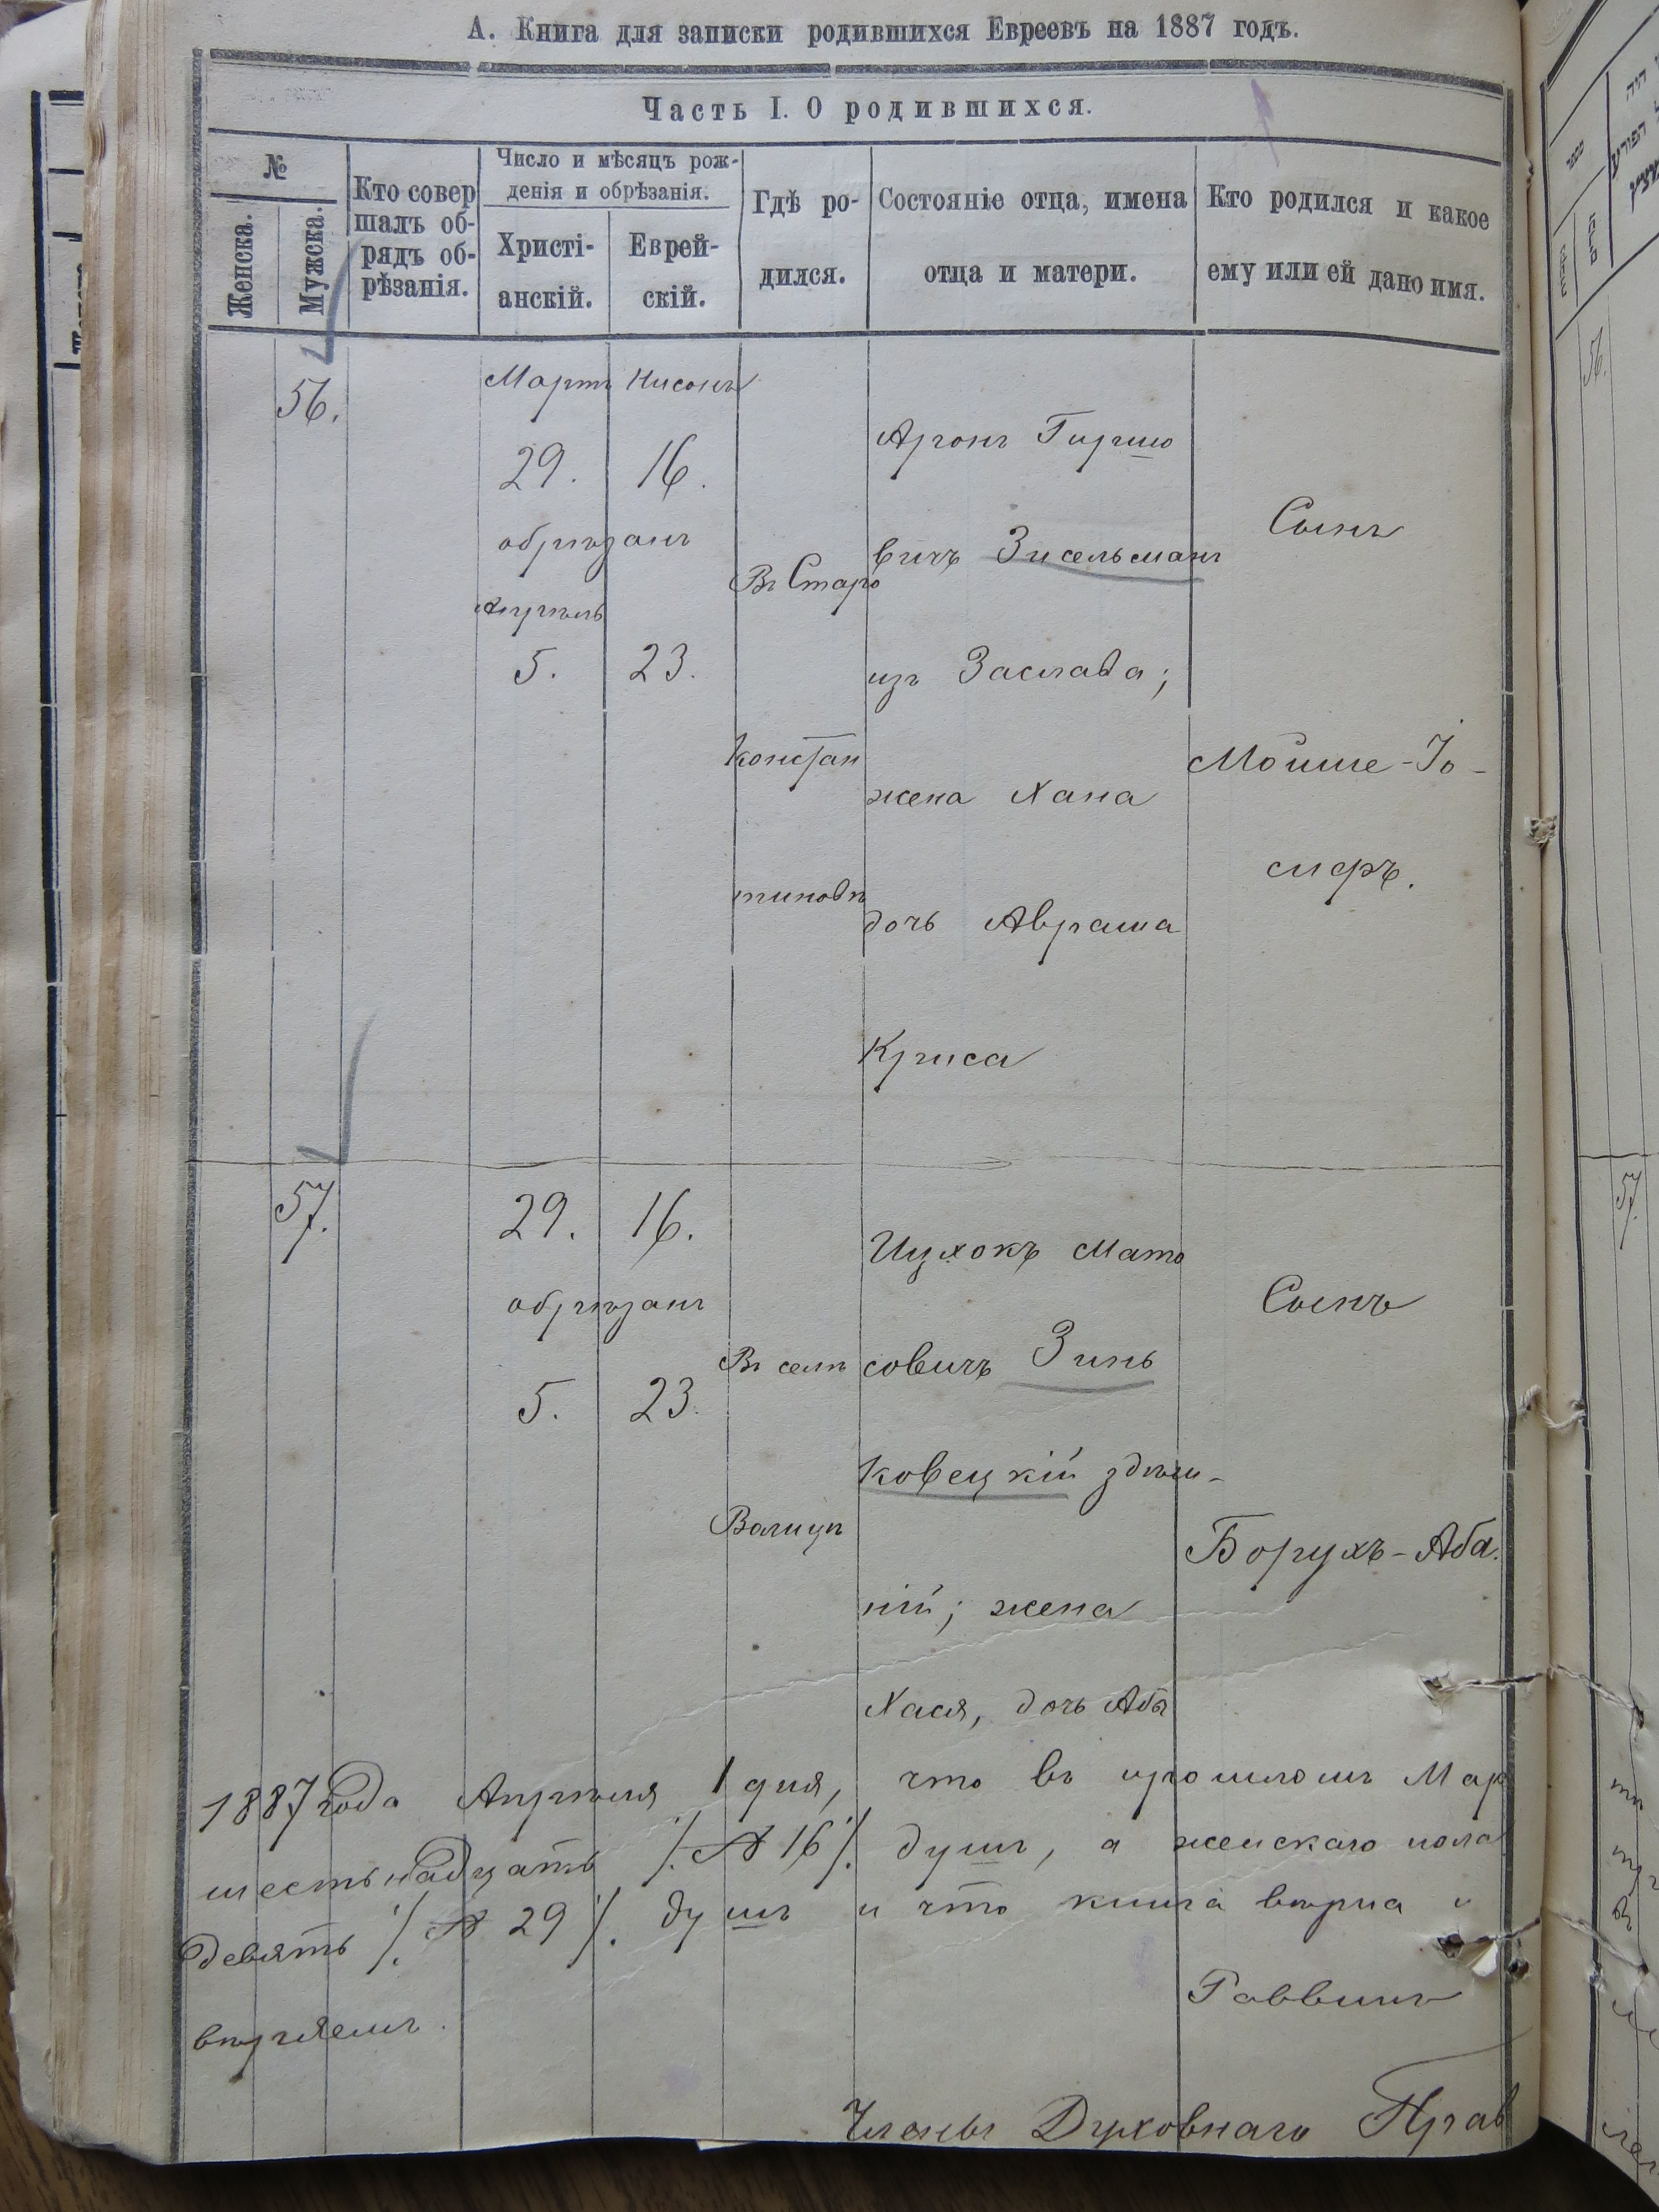 А. Книга для записки родившихся Евреевъ на 1887 годъ.
Часть I. О родившихся.
№
Женска.
Мужска.
Кто совер
шалъ об-
рядъ об-
рѣзанія.
Число и мѣсяцъ рож-
денія и обрѣзанія.
Христі-
анскій.
Еврей-
скій.
Гдѣ ро-
дился.
Состояніе отца, имена
отца и матери.
Кто родился и какое
ему или ей дано имя.
56.
Мартъ Нисонъ
29. 16.
обрѣзанъ
Апрѣль
5. 23.
Въ Старо
констан
тиновѣ
Аронъ Гиршо
вичъ Зисельманъ
изъ Заслава;
жена Хана
дочь Аврама
Криса
Сынъ
Мойше-Іо-
сифъ.
57.
29. 16.
обрѣзанъ
5. 23.
Въ селѣ
Волицѣ
Ицхокъ Мато
совичъ Зинь
ковецкій здѣш-
ній; жена
Хася, дочь Абы
Сынъ
Борухъ-Аба.
1887 года Апрѣля 1 дня, что въ прошломъ Мар
шестьнадцать /. № 16 /. душъ, а женскаго пола
девять /. № 29 /. душъ и что книга вѣрна и
вѣряемъ.
Раввинъ
Члены Духовнаго Прав
56.
57.